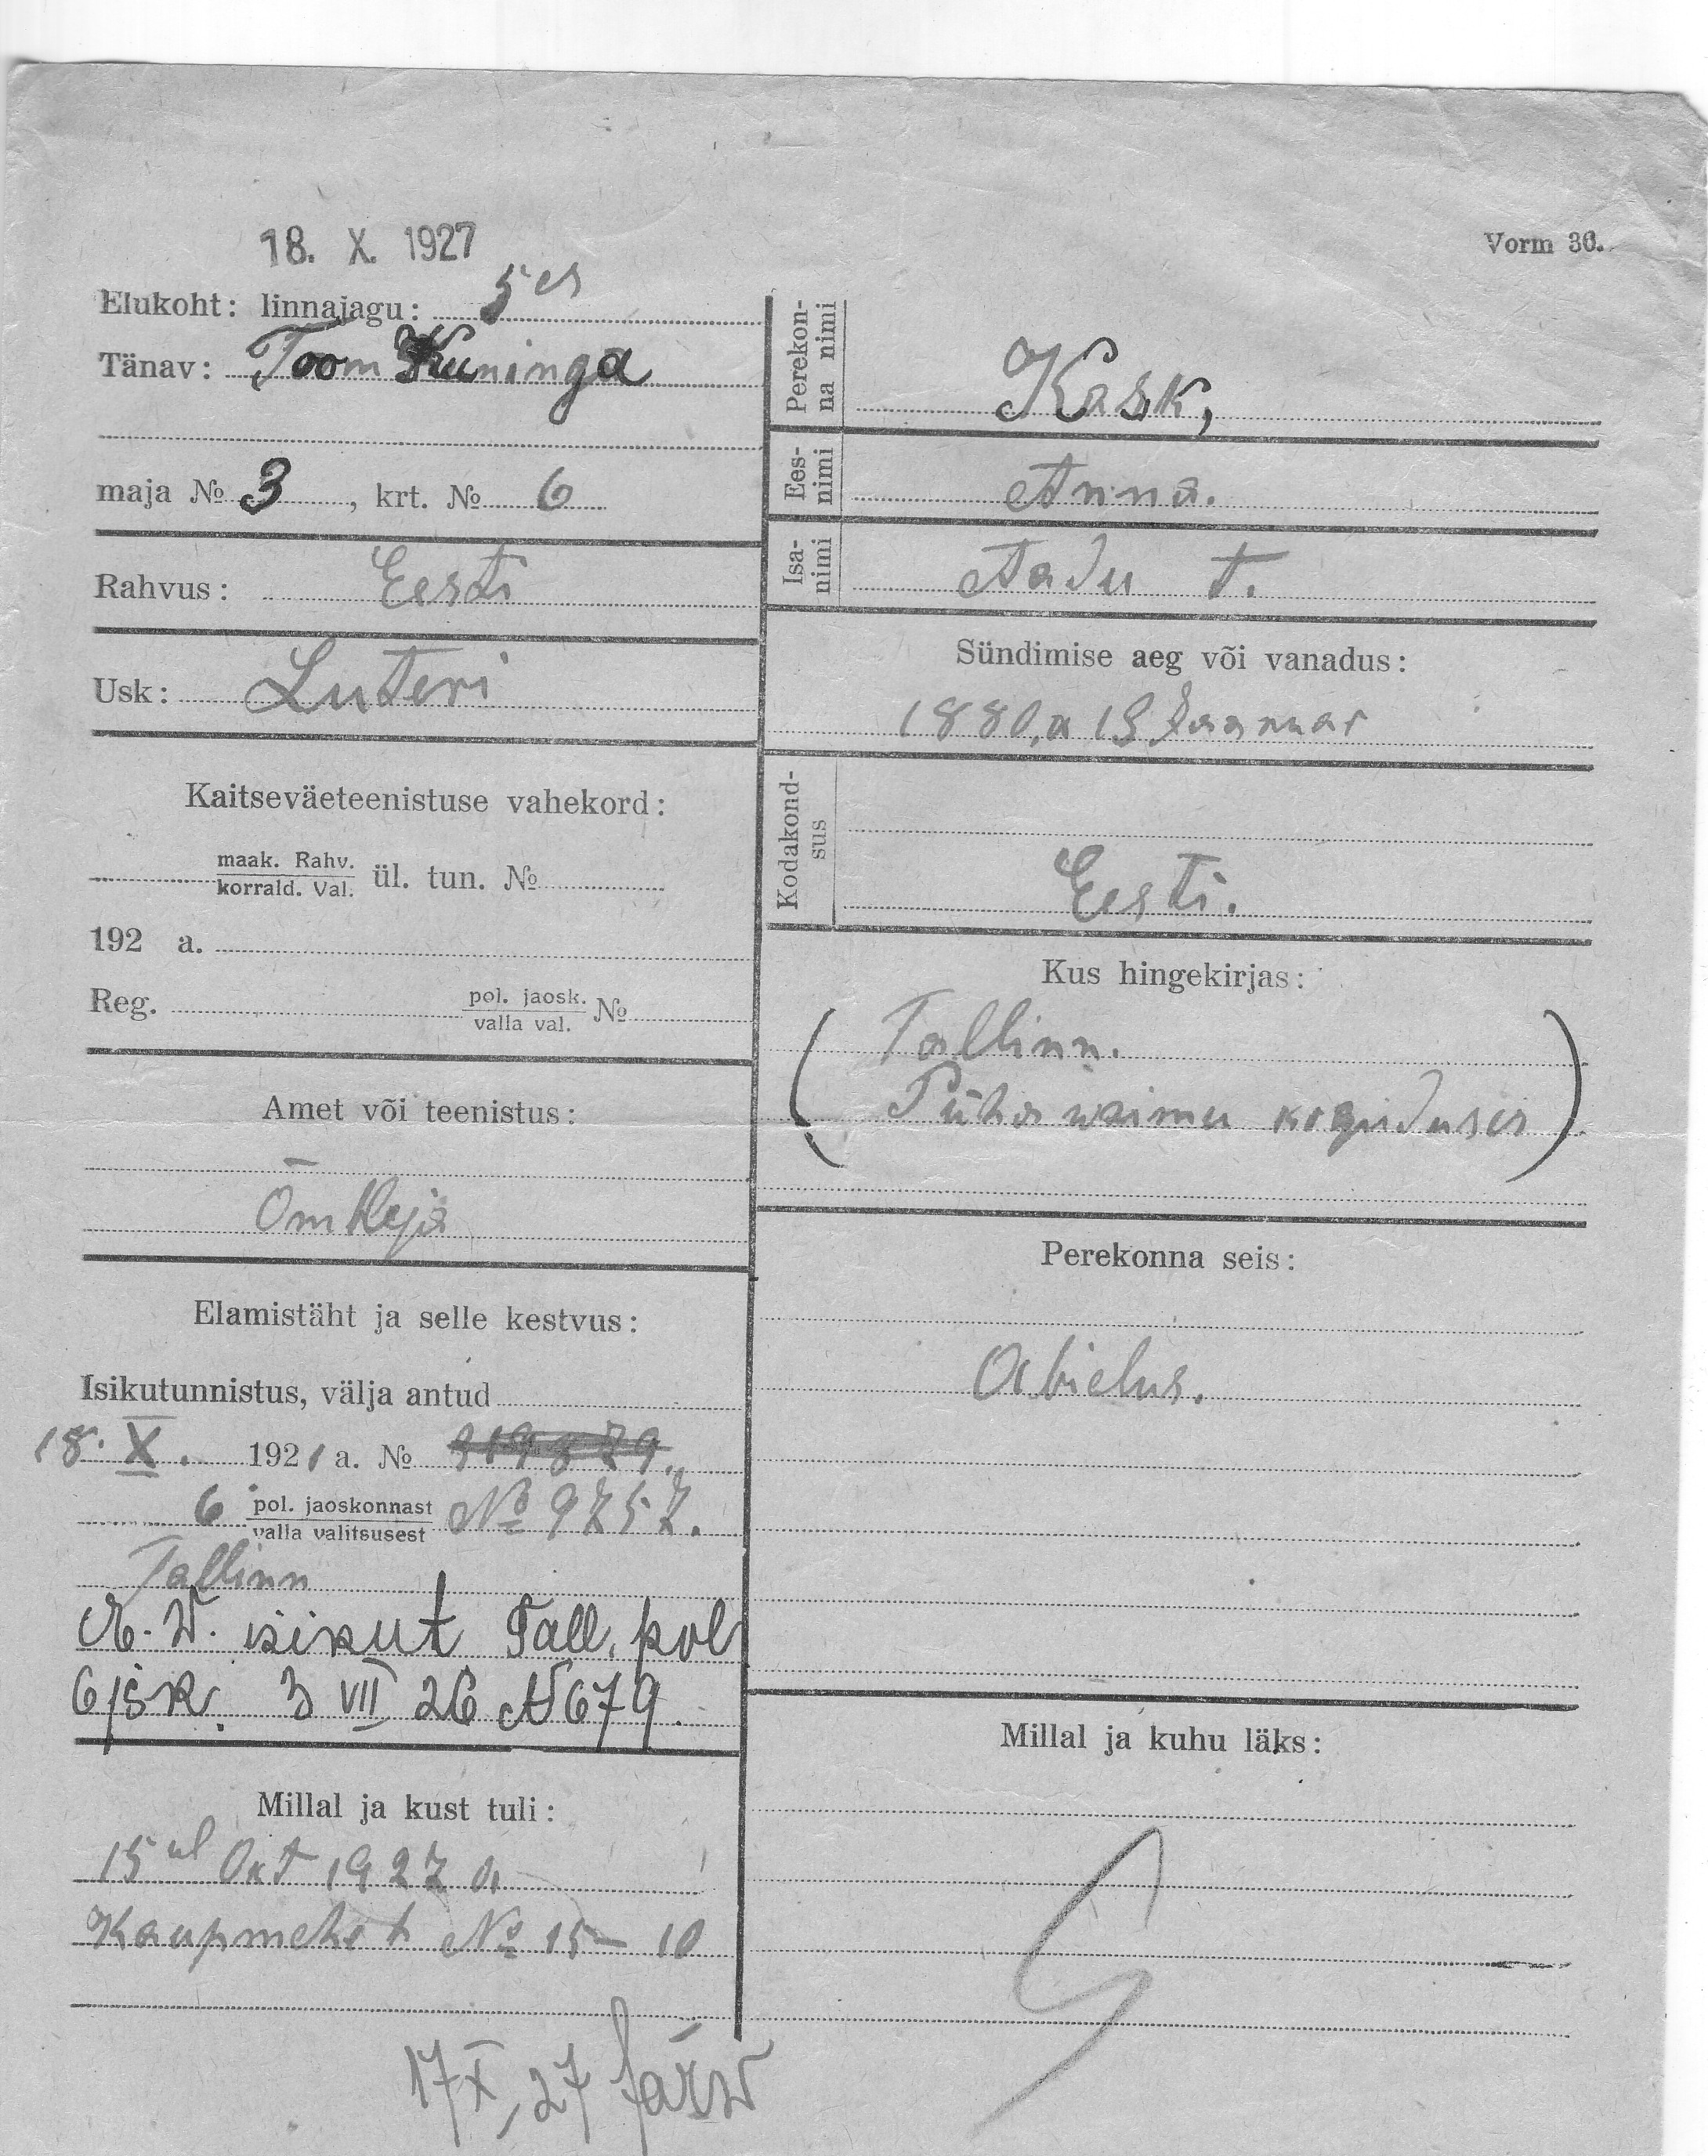 18. X. 1927
Vorm 36.
Elukoht: linnajagu: 5es
Tänav: Toom Kuninga
maja № 3, krt. № 6
Rahvus: Eesti
Usk: Luteri
Kaitseväeteenistuse vahekord:
maak. Rahv.
korrald. Val. ül. tun. №
192 a.
Reg. pol. jaosk.
valla val. №
Amet või teenistus:
Õmbleja
Elamistäht ja selle kestvus:
Isikutunnistus, välja antud
18. X. 1921 a. №
6 pol. jaoskonnast № 9757.
valla valitsusest
Tallinn
A. W. isikut Tall. pol
6 jsk. 3 VII 26 № 679.
Millal ja kust tuli:
15ul Okt 1927 a
Kaupmehe t № 15 – 10
17 X, 27
Perekon-
na nimi
Kask,
Ees-
nimi
Anna.
Isa-
nimi
Aadu t.
Sündimise aeg või vanadus:
1880. a 19 Jaanuar
Kodakond-
sus
Eesti.
Kus hingekirjas:
(Tallinn.
Püha waimu koguduses)
Perekonna seis:
Abielus.
Millal ja kuhu läks: